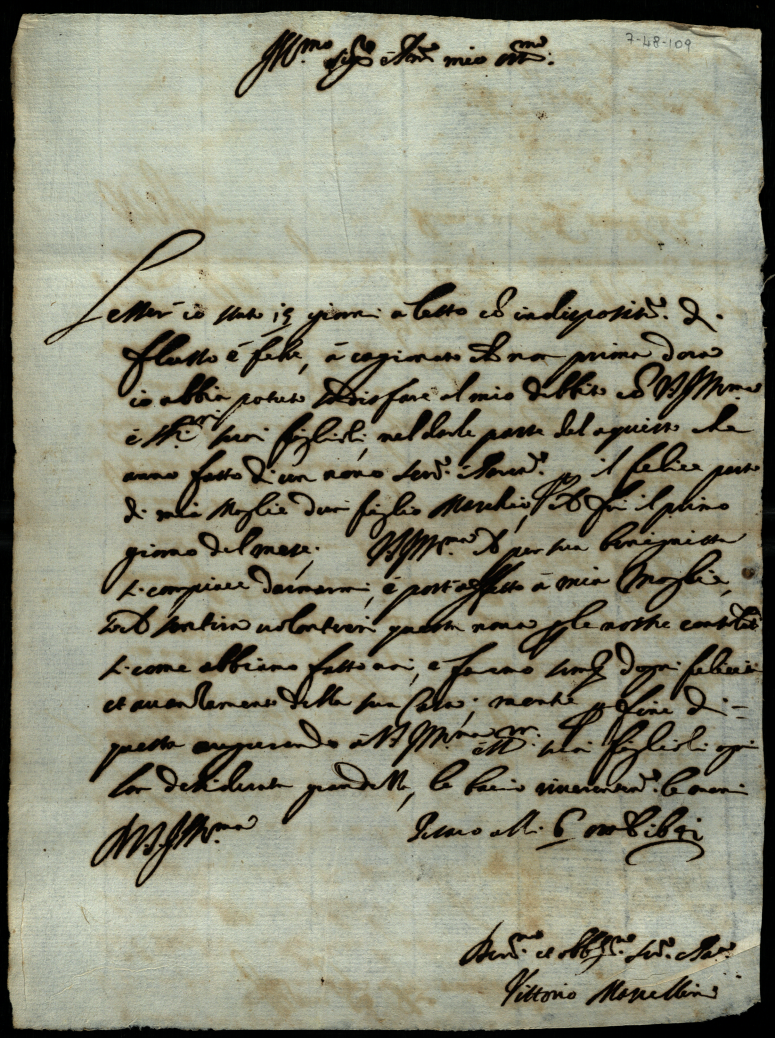 7-48-109
Ill.mo Sig.re e Pron.e mio oss.mo:
L'esser io stato 15 giorni a letto cõ indispositi.e di
flusso è febre, à cagionato ch non prima d'ora
io abbia potuto sodisfare al mio debbito cõ V.S. Ill.ma
è Ill.ri suoi figlioli, nel darle parte del aquisto che
anno fatto di un novo ser.re il felice parto
di mia Moglie d'un figlio Maschio, ch fu il primo
giorno del mese; V.S. Ill.ma ch per sua benignità
si compiace d'amarmi, è port'affetto à mia Moglie,
sentirà volontieri questa nova p le nostre
si come abbiamo fatto noi, e faremo semp d'ogni felicità
et avanzamento della sua Casa; mentre p fine di
questa augurando à V.S. Ill.ma è Ill.ri suoi figlioli ogni
lor desiderata grandezza, le bacio riverentem.e le mani
Di V.S. Ill.ma
Pesaro alli 6 ott.b 1641
Dev.mo et obblig.mo ser.re e Par.e
Vittorio